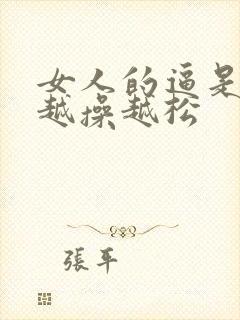 女人的逼是
越操越松
張平